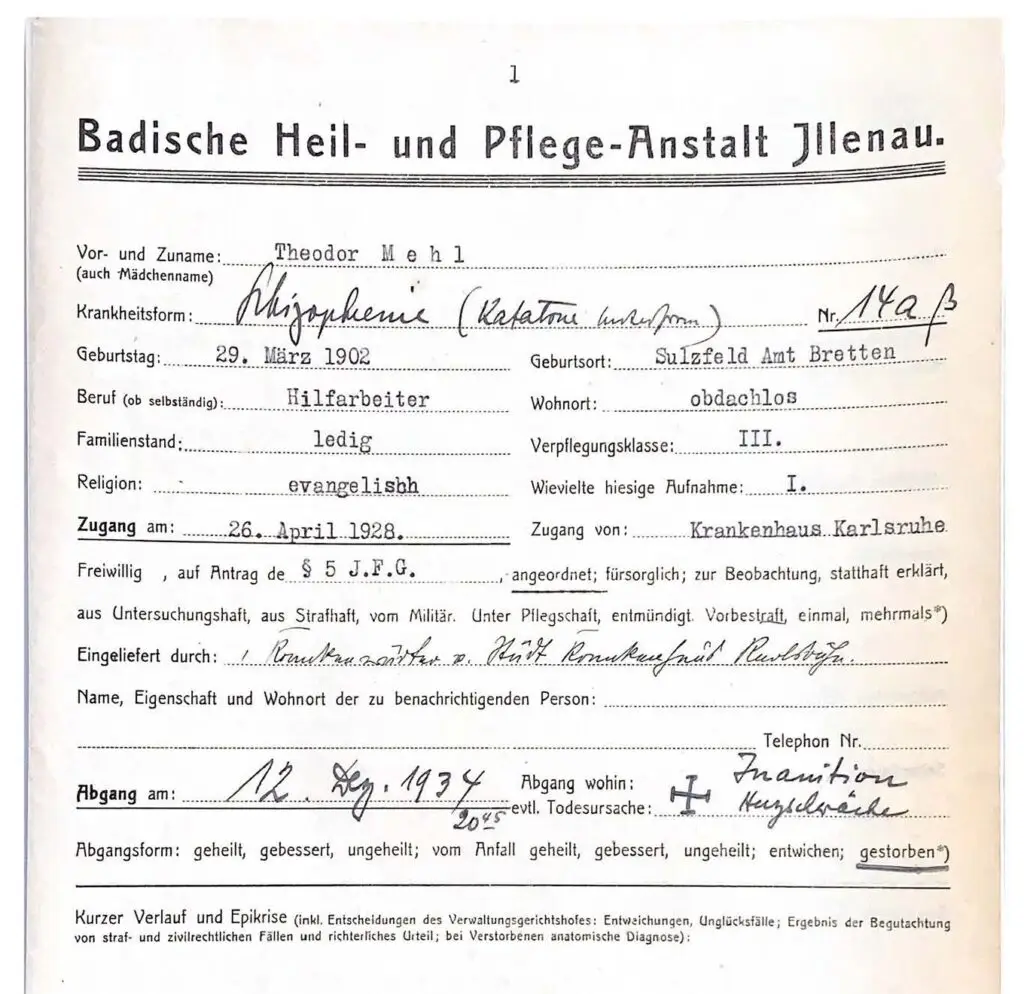 1
Badische Heil- und Pflege-Anstalt Jllenau.
Vor- und Zuname: Theodor M e h l
(auch Mädchenname)
Krankheitsform: Schizophrenie (Katatone Unterform) Nr. 14a β
Geburtstag: 29. März 1902 Geburtsort: Sulzfeld Amt Bretten
Beruf (ob selbständig): Hilfarbeiter Wohnort: obdachlos
Familienstand: ledig Verpflegungsklasse: III.
Religion: evangelisbh Wievielte hiesige Aufnahme: I.
Zugang am: 26. April 1928. Zugang von: Krankenhaus Karlsruhe
Freiwillig , auf Antrag de § 5 J.F.G. , angeordnet; fürsorglich; zur Beobachtung, statthaft erklärt,
aus Untersuchungshaft, aus Strafhaft, vom Militär. Unter Pflegschaft, entmündigt. Vorbestraft, einmal, mehrmals*)
Eingeliefert durch: 1 Krankenwärter v. Städt Krankenhaus Karlsruhe.
Name, Eigenschaft und Wohnort der zu benachrichtigenden Person:
Telephon Nr.
Abgang am: 12. Dez. 1934 20 45 Abgang wohin: Inanition
evtl. Todesursache: Herzschwäche
Abgangsform: geheilt, gebessert, ungeheilt; vom Anfall geheilt, gebessert, ungeheilt; entwichen; gestorben*)
Kurzer Verlauf und Epikrise (inkl. Entscheidungen des Verwaltungsgerichtshofes: Entweichungen, Unglücksfälle; Ergebnis der Begutachtung
von straf- und zivilrechtlichen Fällen und richterliches Urteil; bei Verstorbenen anatomische Diagnose):